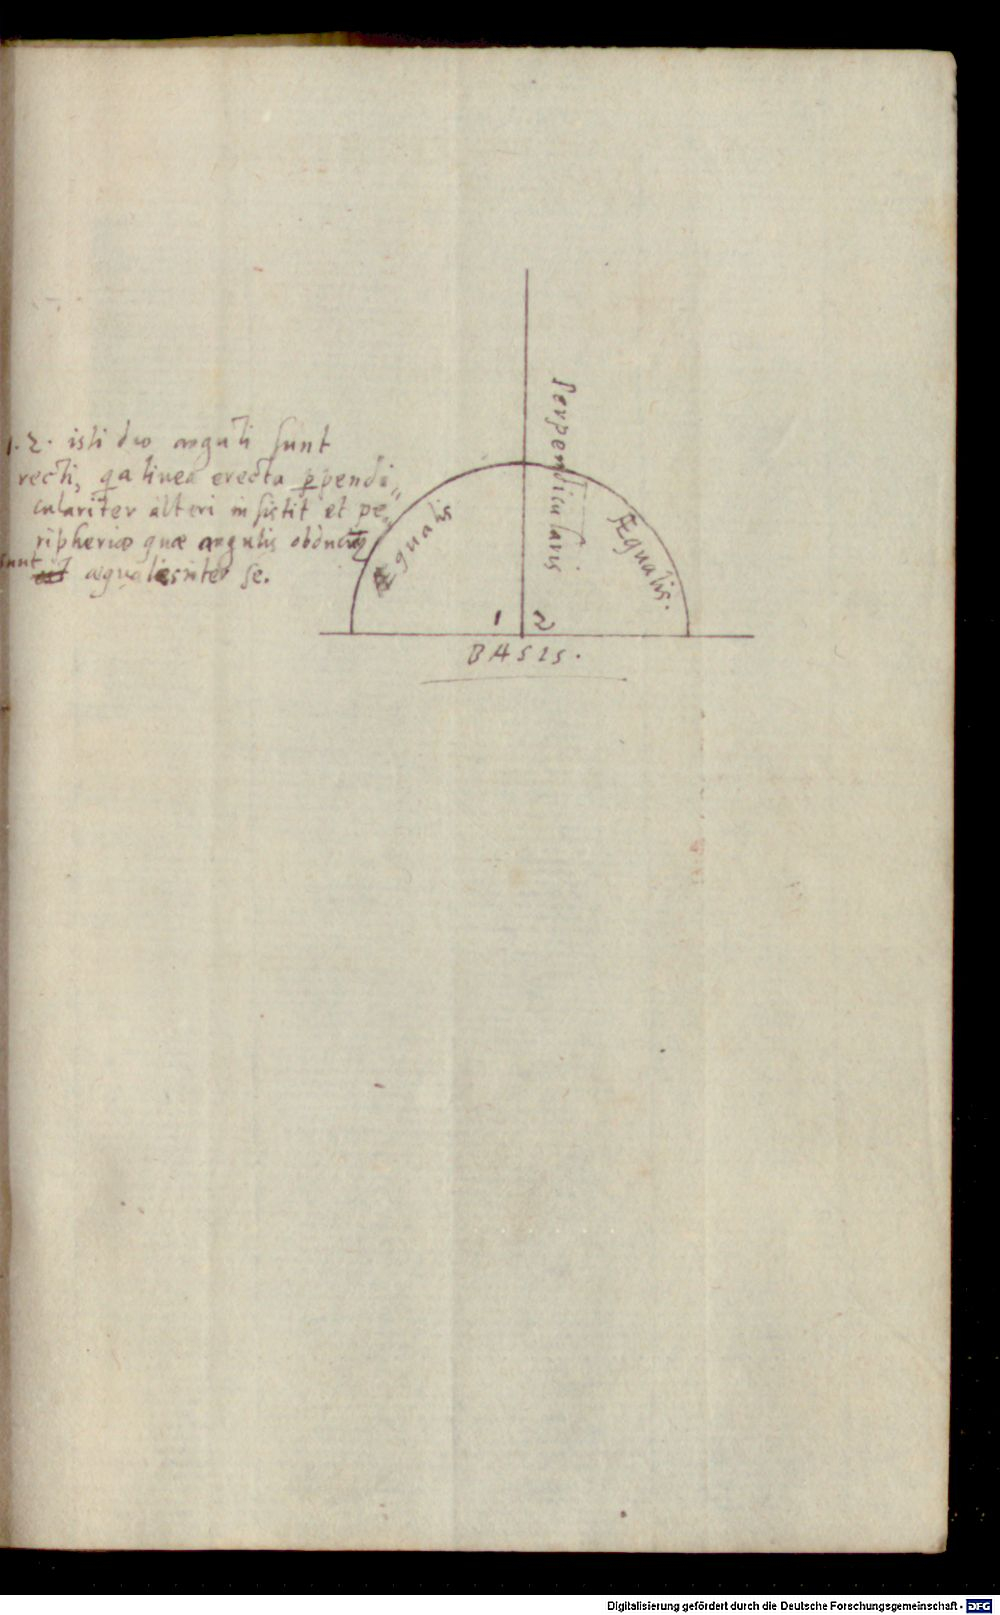 1. 2. isti duo anguli sunt
recti, qa linea erecta ꝑpendi„
culariter alteri insistit et pe„
ripheriæ quæ angulis obducuntʳ
sunt æquales inter se.
Perpendicularis
Æqualis
Æqualis.
1 2
BASIS.
Digitalisierung gefördert durch die Deutsche Forschungsgemeinschaft - DFG